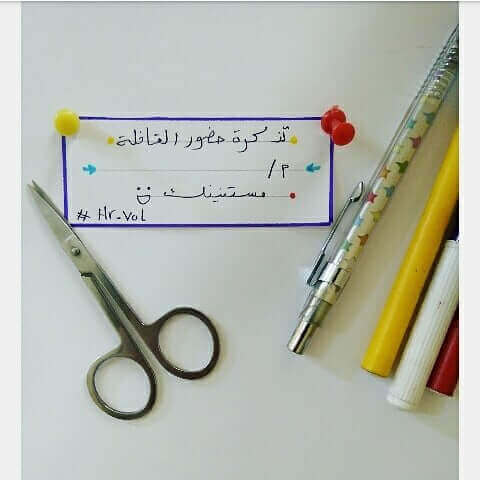 تذكرة حضور القافلة
م/
مستنينك
# Hr-vol